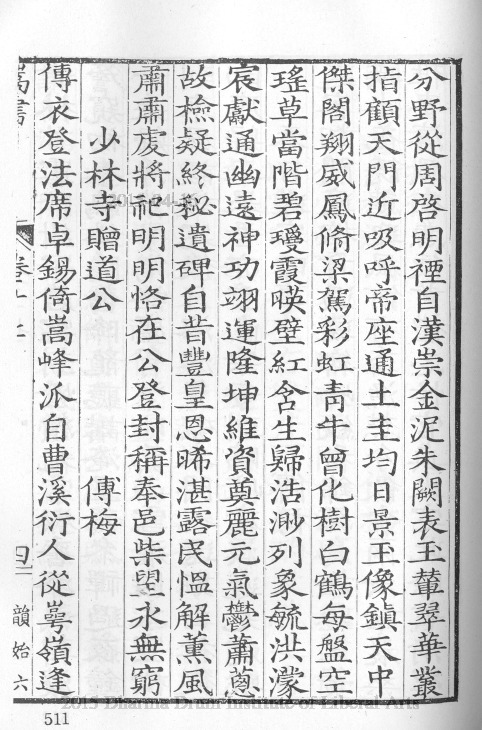 分野從周啓明禋自漢崇金泥朱闕表玉輦翠華叢
指顧天門近吸呼帝座通土圭均日景玉像鎮天中
傑閣翔威鳳脩梁駕彩虹青牛曾化樹白鶴每盤空
瑤草當階碧璦霞暎壁紅含生歸浩渺列象毓洪濛
宸獻通幽遠神功翊運隆坤維資奠麗元氣鬱蕭蔥
故檢疑終秘遺碑自昔豐皇恩晞湛露民慍解薰風
肅肅虔將祀明明恪在公登封稱奉邑柴望永無窮
少林寺贈道公 傅梅
傳衣登法席卓錫倚嵩峰派自曹溪衍人從蕚嶺逢
嵩書 卷十七 韻始六
511
2015 Dharma Drum Institute of Liberal Arts